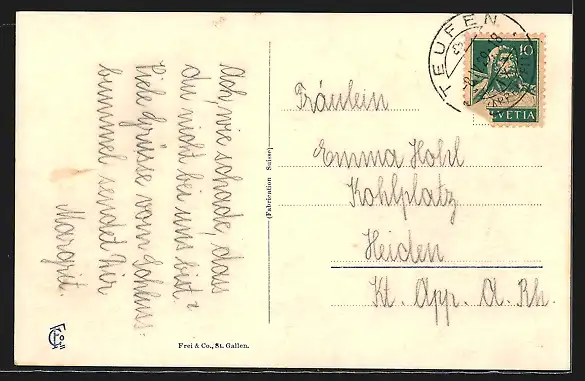 Ach, wie schade, dass
du nicht bei uns bist.
Viele Grüsse vom Schluss-
bummel sendet Dir
Margrit.
(Fabrication Suisse)
Frei & Co., St. Gallen.
TEUFEN
10
HELVETIA
Fräulein
Emma Hohl
Kohlplatz
Heiden
Kt. App. A. Rh.